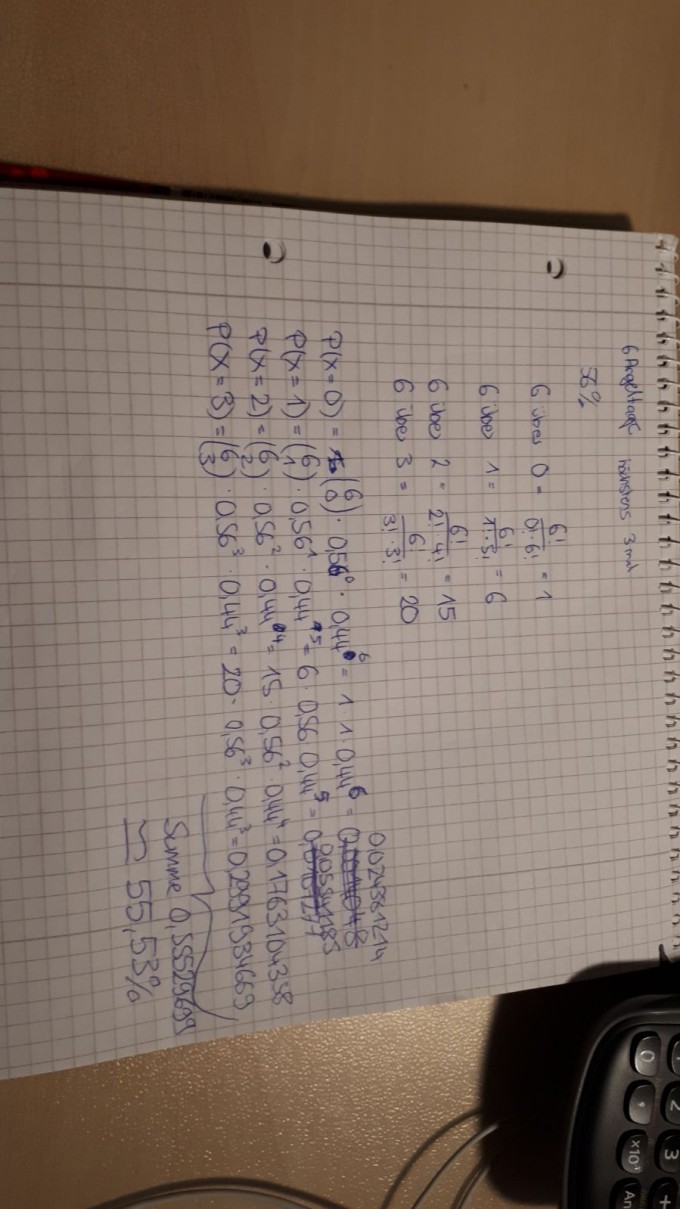 6 Angeltage höchstens 3 mal
56%
6 über 0 = 6! / 0! · 6! = 1
6 über 1 = 6! / 1! · 5! = 6
6 über 2 = 6! / 2! · 4! = 15
6 über 3 = 6! / 3! · 3! = 20
P(X = 0) = (6 0) · 0,56⁰ · 0,44⁶ = 1 · 1 · 0,44⁶ = 0,02436121
P(X = 1) = (6 1) · 0,56¹ · 0,44⁵ = 6 · 0,56 · 0,44⁵ =
P(X = 2) = (6 2) · 0,56² · 0,44⁴ = 15 · 0,56² · 0,44⁴ = 0,1763104358
P(X = 3) = (6 3) · 0,56³ · 0,44³ = 20 · 0,56³ · 0,44³ = 0,2991934669
Summe
≈ 55,53%
0 1 2 3 +
, ×10ˣ An